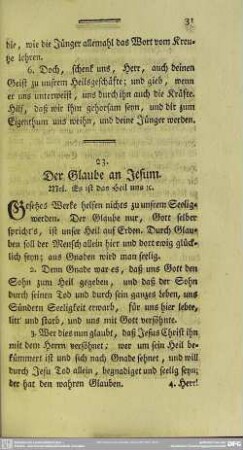 31
die, wie die Jünger allemahl das Wort vom Kreu-
tze lehren.
6. Doch, schenk uns, Herr, auch deinen
Geist zu unserm Heilsgeschäfte; und gieb, wenn
er uns unterweist, uns durch ihn auch die Kräfte.
Hilf, daß wir ihm gehorsam seyn, und dir zum
Eigenthum uns weihn, und deine Jünger werden.
23.
Der Glaube an Jesum.
Mel. Es ist das Heil uns ꝛc.
Gesetzes Werke helfen nichts zu unserm Seelig-
werden. Der Glaube nur, Gott selber
spricht's, ist unser Heil auf Erden. Durch Glau-
ben soll der Mensch allein hier und dort ewig glück-
lich seyn; aus Gnaden wird man seelig.
2. Denn Gnade war es, daß uns Gott den
Sohn zum Heil gegeben, und daß der Sohn
durch seinen Tod und durch sein ganzes Leben, uns
Sündern Seeligkeit erwarb, für uns hier lebte,
litt und starb, und uns mit Gott versöhnte.
3. Wer dies nun glaubt, daß Jesus Christ ihn
mit dem Herrn versöhnet; wer um sein Heil be-
kümmert ist und sich nach Gnade sehnet, und will
durch Jesu Tod allein, begnadiget und seelig seyn;
der hat den wahren Glauben. 4. Herr!